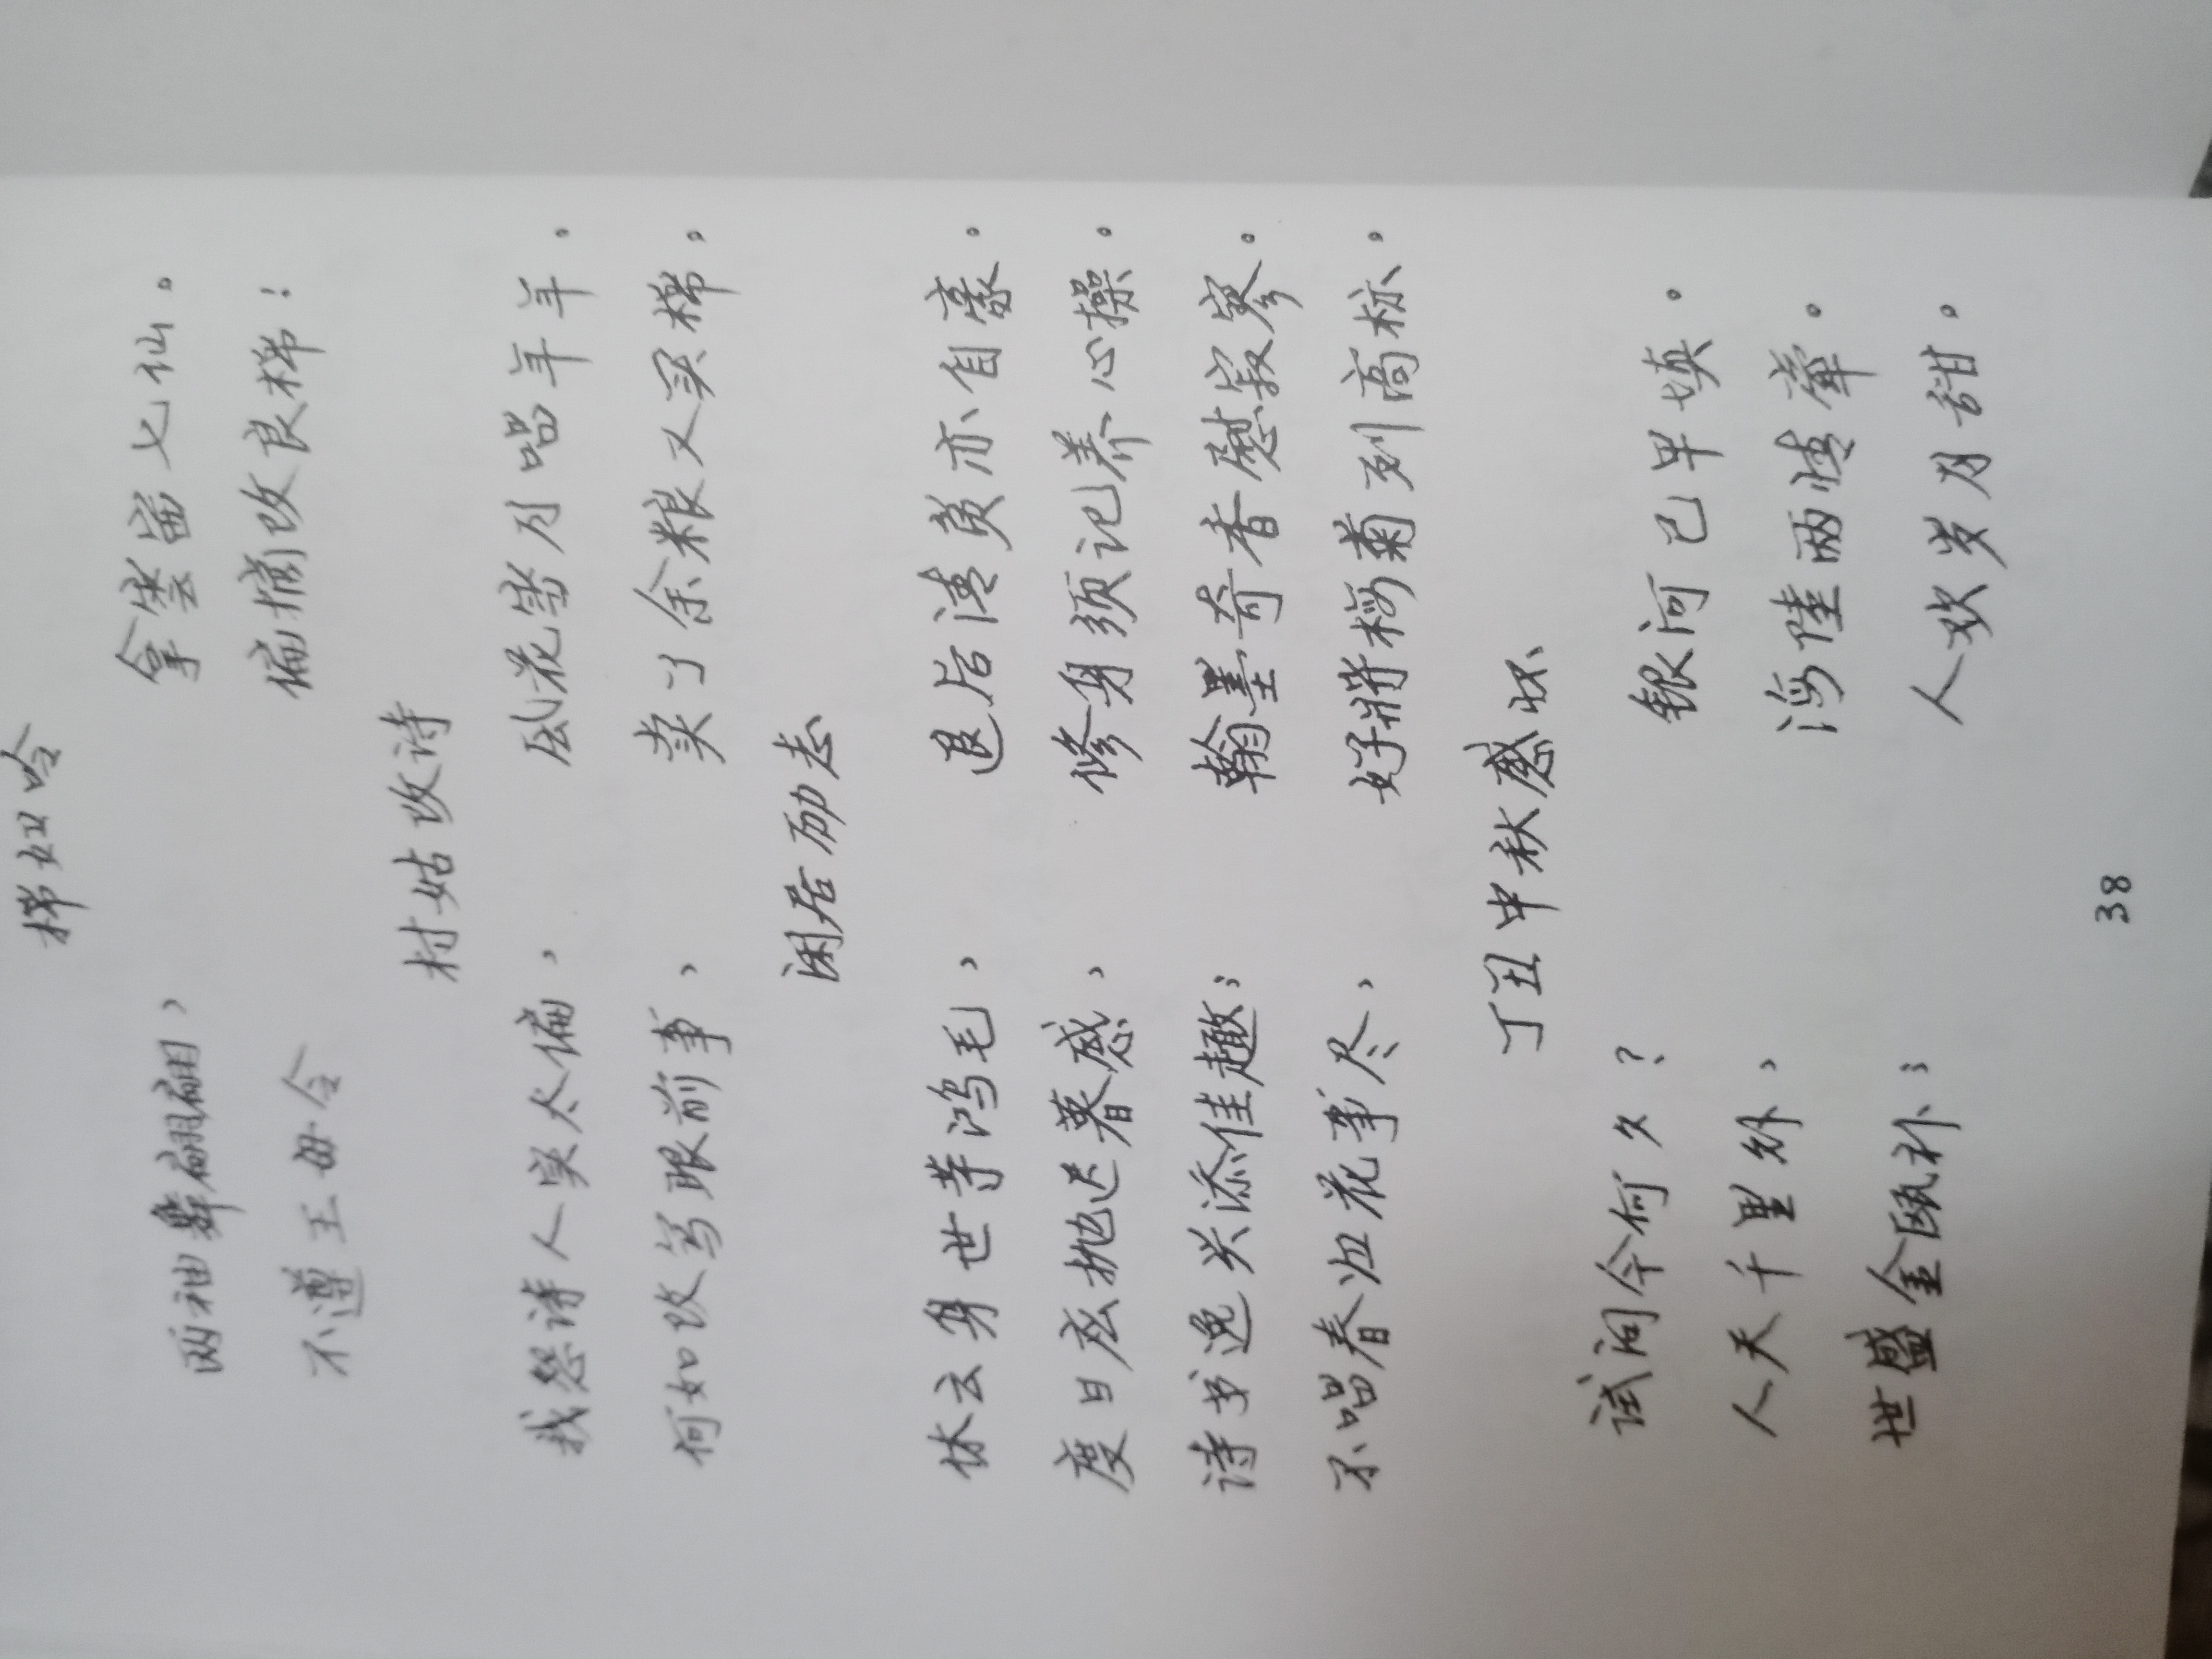 梯如吟
两袖舞翩翩， 拿篮当七仙。
不遵王母令 偏摘改良梯！
村姑改诗
我怨诗人实太偏， 底花岁月唱年年。
何如改写眼前事， 卖了余粮又买梯。
闲居励志
休云身世等鸿毛， 退居清贫亦自豪。
度日应抛迟暮感， 修身须记养心操。
诗书逸兴添佳趣； 翰墨奇香慰寂寥。
不唱春归花事尽， 好将梅菊列高标。
丁丑中秋感怀
试问今何夕？ 银河已早填。
人天千里外， 海陆两情牵。
世盛金瓯补； 人欢岁月甜。
38